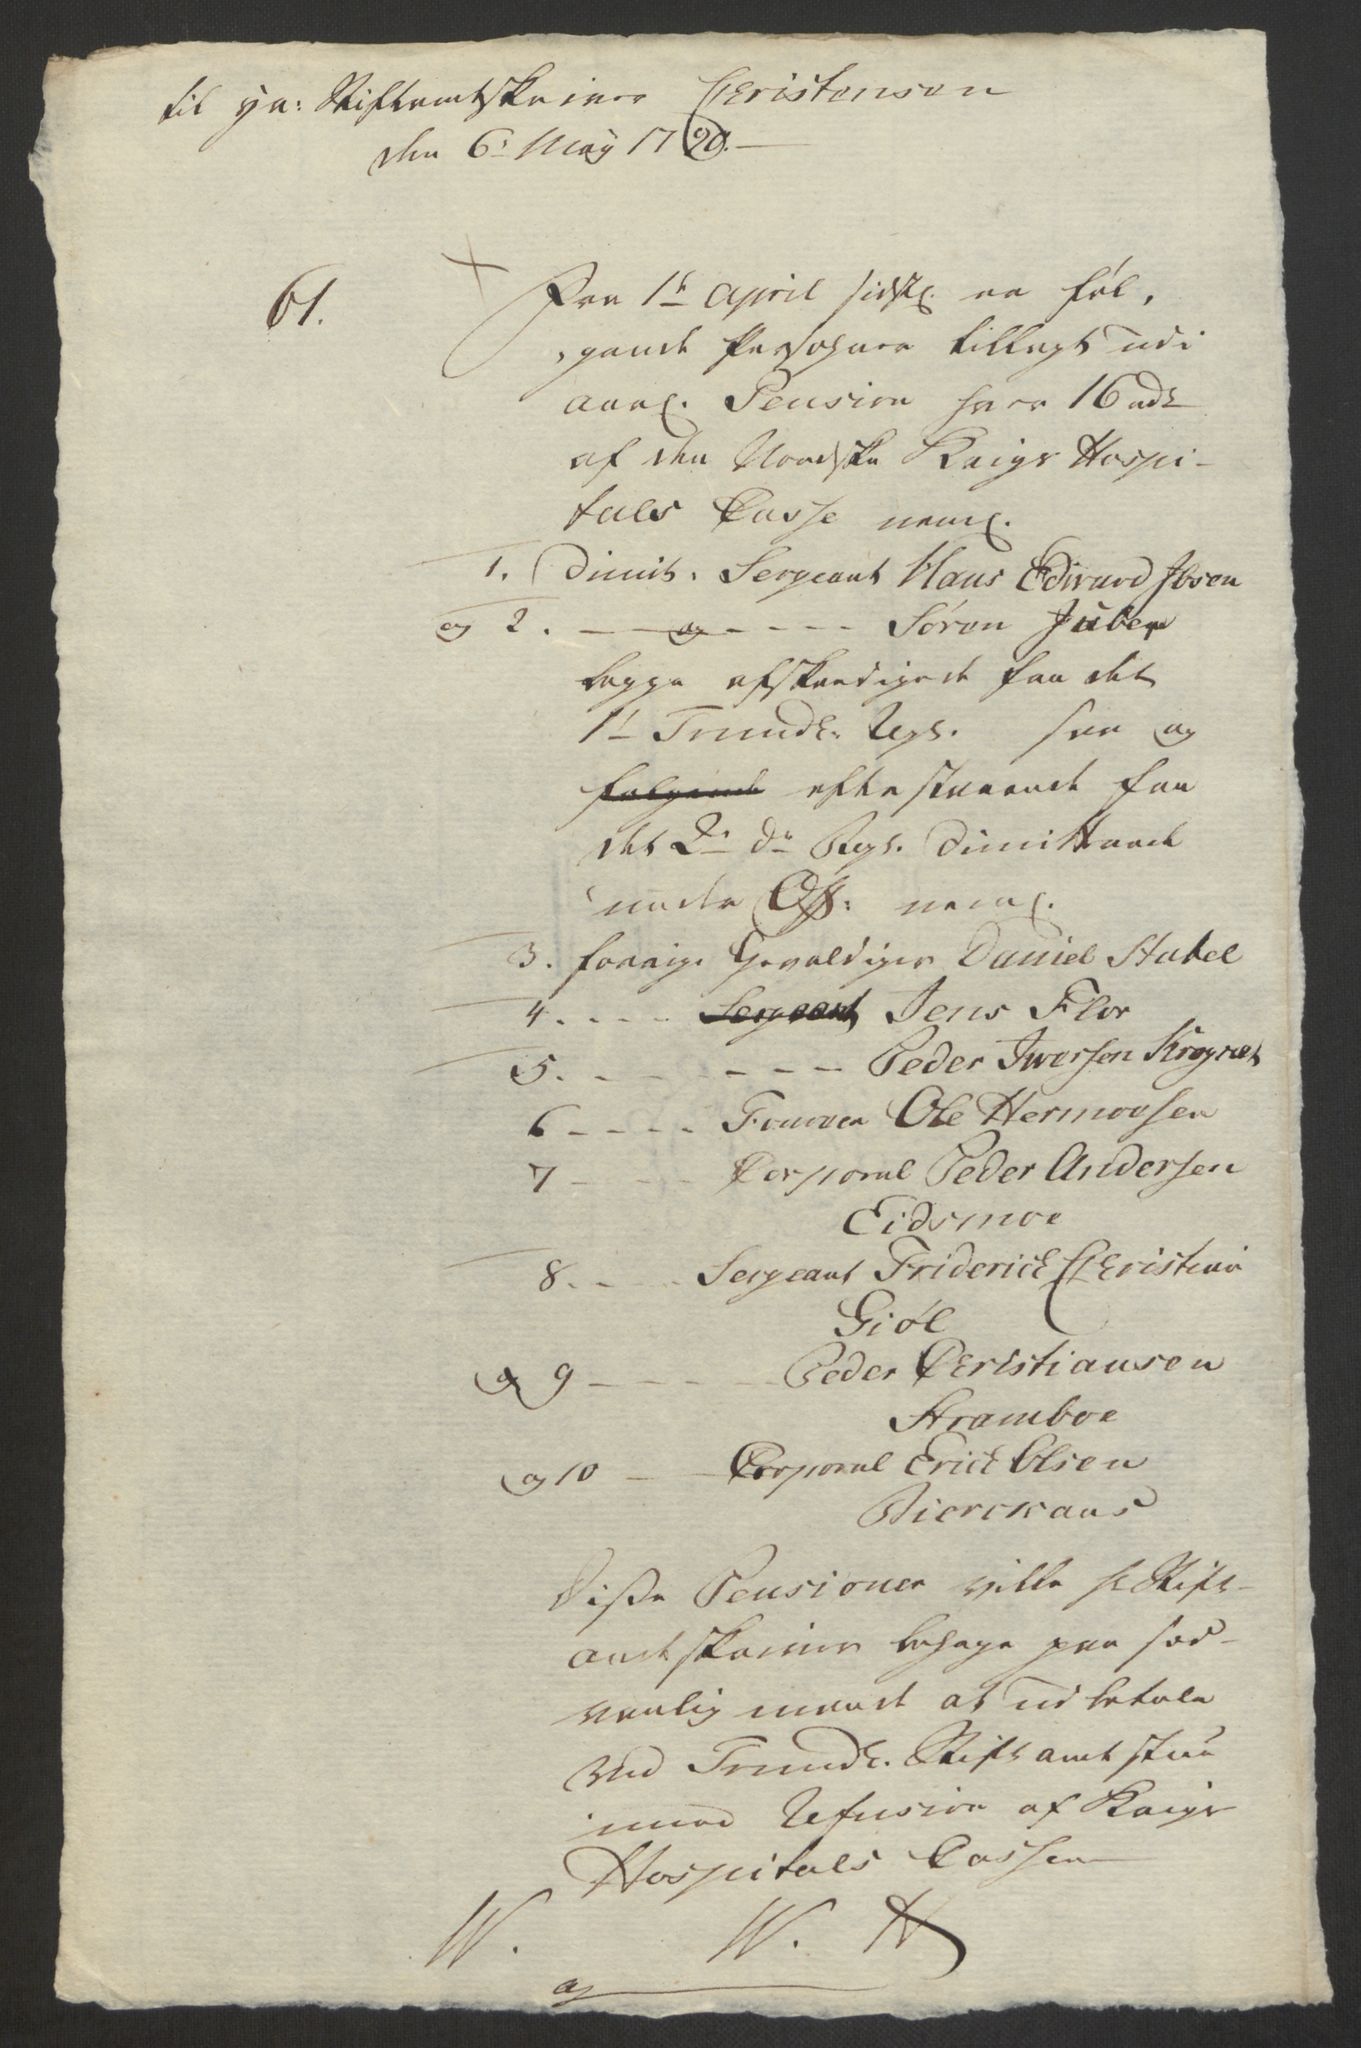 til Hr: Stiftamtskriver Christensen
den 6: May 1790.
61.
Fra 1te April sidstl. er føl,
gende Persohner tillagt udi
aarl. Pension hver 16 rdr
af den Norske Krigs Hospi-
tals Casse neml.
1. Dimit. Sergeant Hans Edward Ibsen
og 2. — og - - - - Søren Juber
begge afskeediget fra det
1te Trundh. Regt. saa og
følgende efterstaaende fra
det 2de do Regt. Dimitterede
under Off: neml.
3. forrige Gevaldiger Daniel Stabel
4. - - - Sergeant Jens Flor
5. - - - - - Peder Iwersen Krogset
6 - - - - Fourer Ole Hermoesen
7 - - - Corporal Peder Andersen
Eidsmoe
8. - - - Sergeant Friderich Christian
Giøl
og 9 - - - - - Peder Christiansen
Stramboe
og 10 - - - Corporal Erich Olsen
Bierckaas
Disse Pensioner ville Hr Stift-
amtskriver behage paa sæd-
vanlig maade at udbetale
ved Trundh. Stiftamtstue
imod Refusion af Krigs
Hospitals Cassen
W. W. H
og